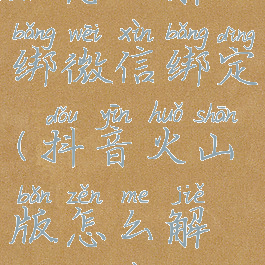 bǎng wēi xìn bǎng dìng
绑微信绑定
dǒu yīn huǒ shān
(抖音火山
bǎn zěn me jiě
版怎么解